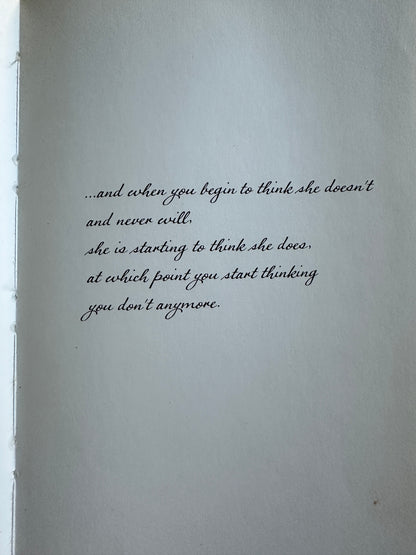 ...and when you begin to think she doesn't
and never will,
she is starting to think she does,
at which point you start thinking
you don't anymore.